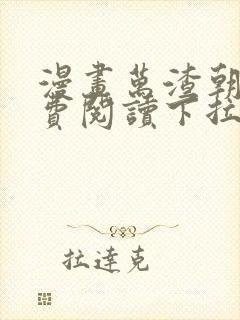 漫畫萬渣朝
費閱讀下拉
拉達克